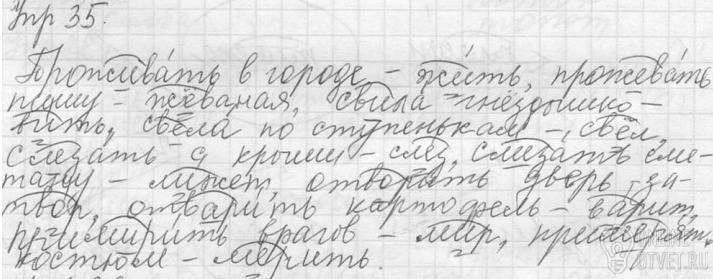 Упр 35.
Проживать в городе - жить, прожевать
пищу - жёваная, свила гнёздышко -
вить, свела по ступенькам - свёл,
слезать с крыши - слез, слизать сме-
тану - лижет, отворить дверь, за-
твор, отварить картофель - варит,
примирить врагов - мир, примерять
костюм - мерить.
ONLINE
OTVET.RU